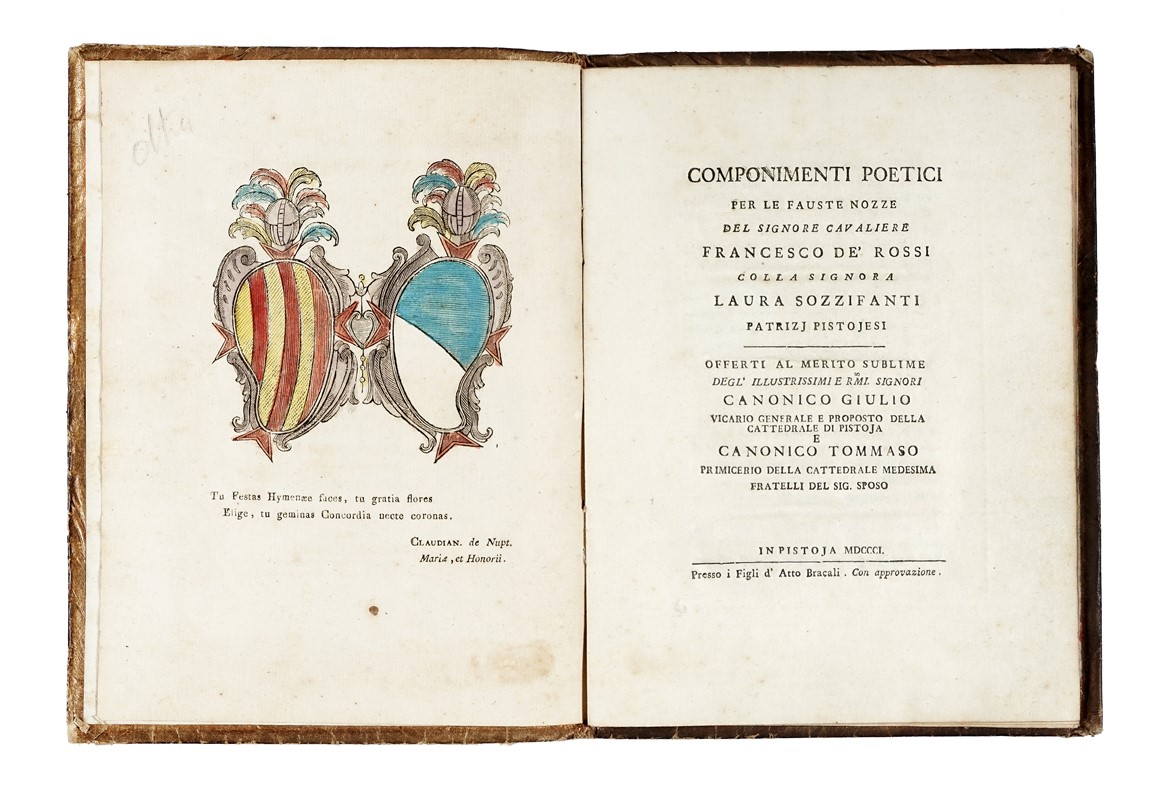 Tu Festas Hymenæe faces, tu gratia flores
Elige, tu geminas Concordia necte coronas.
CLAUDIAN. de Nupt.
Mariæ, et Honorii.
COMPONIMENTI POETICI
PER LE FAUSTE NOZZE
DEL SIGNORE CAVALIERE
FRANCESCO DE' ROSSI
COLLA SIGNORA
LAURA SOZZIFANTI
PATRIZJ PISTOJESI
OFFERTI AL MERITO SUBLIME
DEGL' ILLUSTRISSIMI E RM̃I. SIGNORI
CANONICO GIULIO
VICARIO GENERALE E PROPOSTO DELLA
CATTEDRALE DI PISTOJA
E
CANONICO TOMMASO
PRIMICERIO DELLA CATTEDRALE MEDESIMA
FRATELLI DEL SIG. SPOSO
IN PISTOJA MDCCCI.
Presso i Figli d' Atto Bracali. Con approvazione.